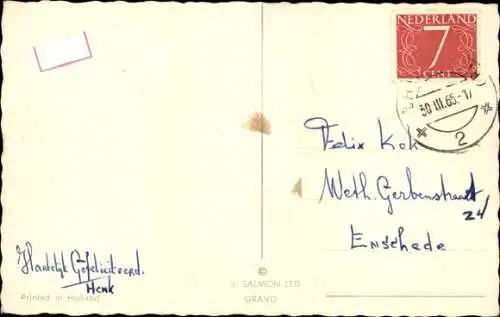 NEDERLAND
7
CENT
30 III.65-17
2
Felix Kok
Weth. Gerbenstraat
24
Enschede
Hartelijk Gefeliciteerd.
Henk
Printed in Holland
©
J. SALMON LTD
GRAVO